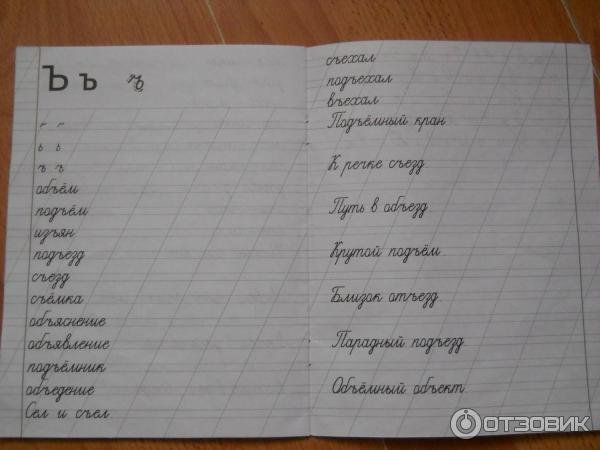 Ъ ъ ъ
ъ ъ
ъ ъ
объём
подъём
изъян
подъезд
съезд
съёмка
объяснение
объявление
подъёмник
объедение
Сел и съел
съехал
подъехал
въехал
Подъёмный кран
К речке съезд
Путь в объезд
Крутой подъём
Близок отъезд
Парадный подъезд
Объёмный объект
ОТЗОВИК